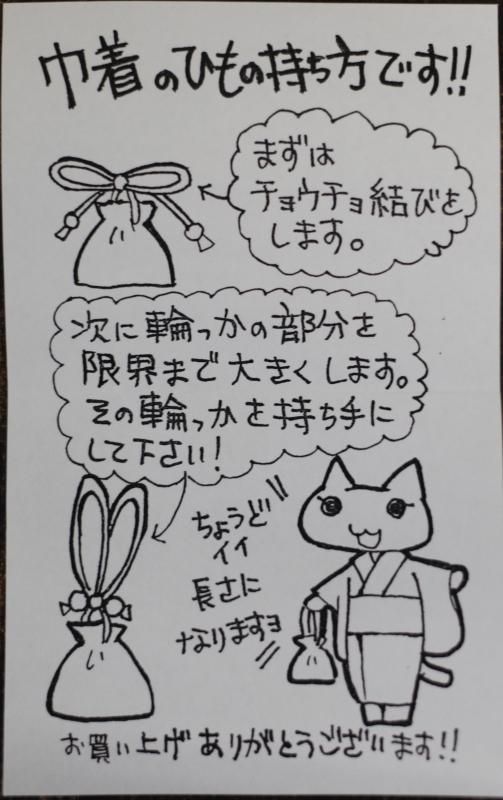 巾着のひもの持ち方です!!
まずは
チョウチョ結びを
します。
次に輪っかの部分を
限界まで大きくします。
その輪っかを持ち手に
して下さい!
ちょうど
イイ
長さに
なりますヨ
お買い上げありがとうございます!!